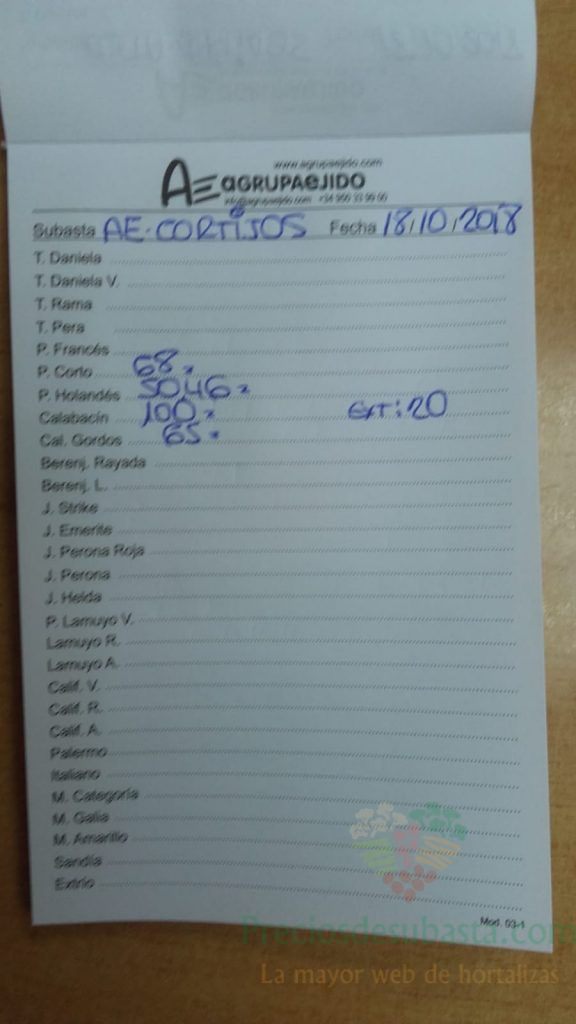 www.agrupaejido.com
AE AGRUPAEJIDO
info@agrupaejido.com +34 950
Subasta AE.CORTIJOS Fecha 18/10/2018
T. Daniela
T. Daniela V.
T. Rama
T. Pera
P. Francés
P. Corto 68
P. Holandés 50,46
Calabacín 100 EXT:20
Cal. Gordos 65
Berenj. Rayada
Berenj. L.
J. Strike
J. Emerite
J. Perona Roja
J. Perona
J. Helda
P. Lamuyo V.
Lamuyo R.
Lamuyo A.
Calif. V.
Calif. R.
Calif. A.
Palermo
Italiano
M. Categoría
M. Galia
M. Amarillo
Sandía
Extrio
Mod. 03-1
Preciosdesubasta.com
La mayor web de hortalizas